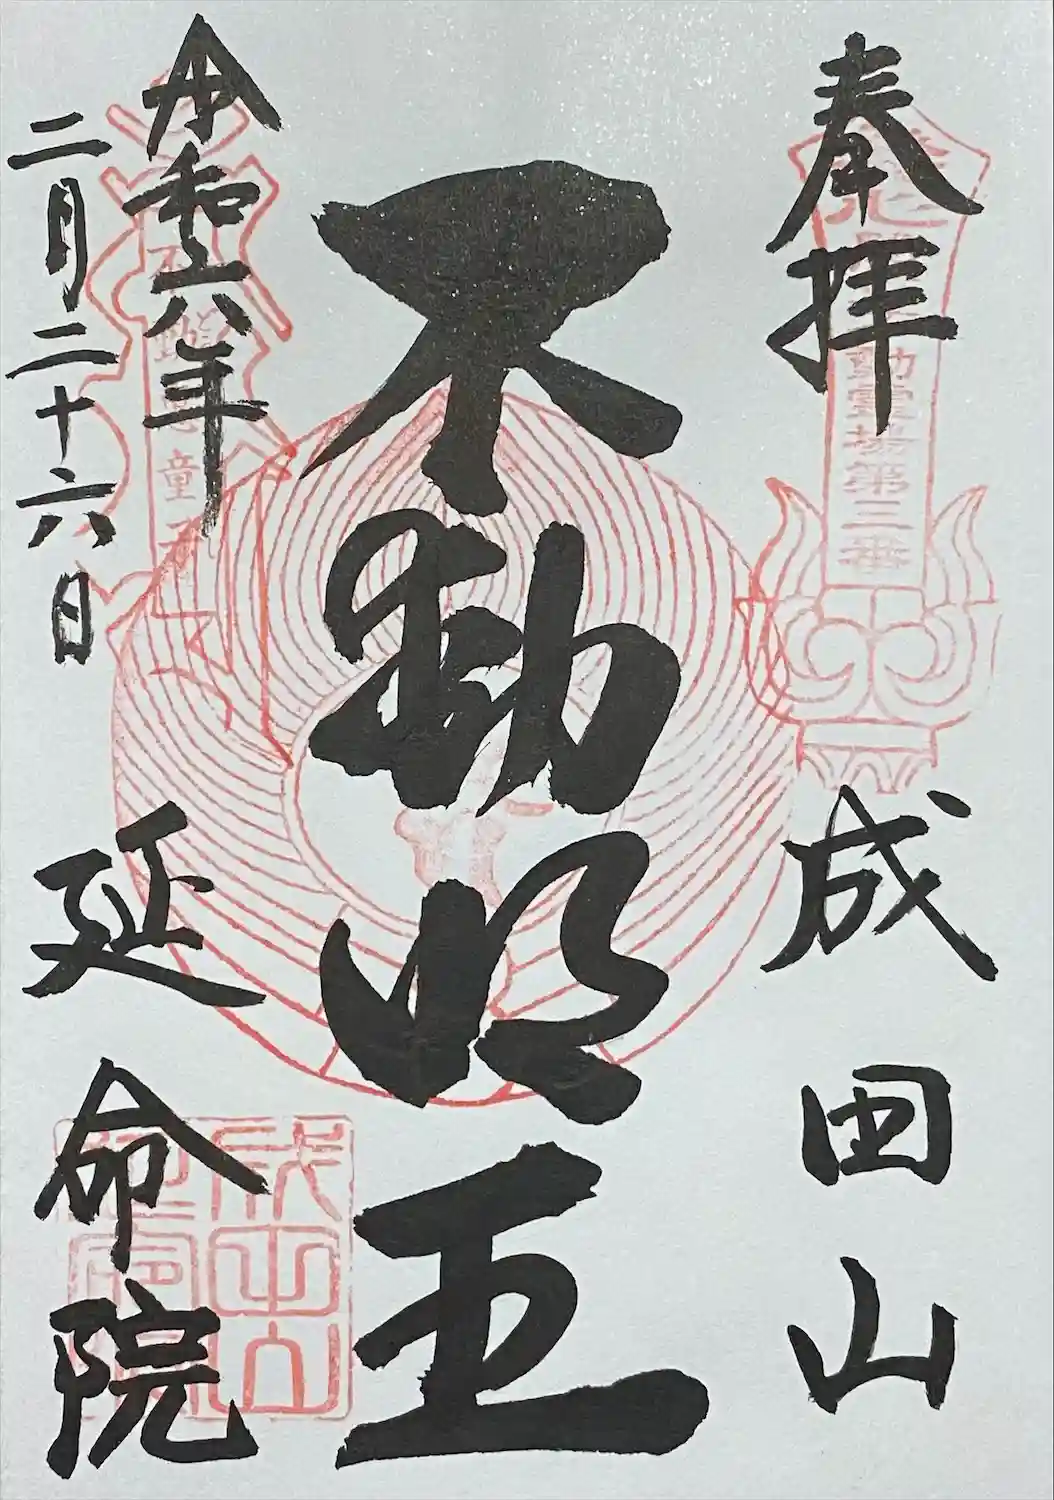 奉拝
成田山
不動明王
令和六年
二月二十六日
延命院
動霊場第三番
成田山